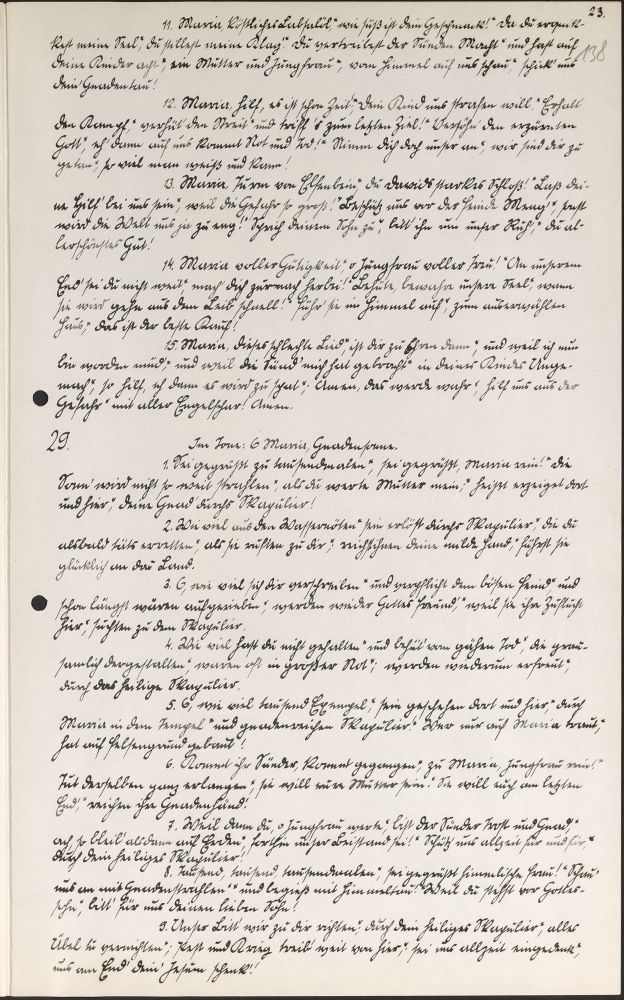 23.
138
11. Maria, köstliches Labsalöl,“ wie süß ist dein Geschmack!“ Da du erquik-
kest meine Seel,“ du stellest meine Klag.“ Du vertreibest der Sünden Macht“ und hast auf
deine Kinder acht“, ein Mutter und Jungfrau“, vom Himmel auf uns schau,“ schick' uns
dein' Gnadentau!
12. Maria, hilf, es ist schon Zeit“ Dein Kind uns strafen will.“ Erhalt
den Kampf,“ verhüt' den Streit“ und triff's zum letzten Ziel!“ Versöhn' den erzürnten
Gott“, eh' dann auf uns kommt Not und Tod!“ Nimm dich doch unser an“, wir sind dir zu-
getan“, so viel man weiß und kann!
13. Maria, Turm von Elfenbein“, du Davids starkes Schloß!“ Laß dei-
ne Hilf' bei uns sein“, weil die Gefahr so groß!“ Beschütz uns vor der Feinde Meng'“, fast
wird die Welt uns ja zu eng!“ Sprich deinem Sohn zu“, bitt' ihn um unser Ruh',“ du al-
lerschönstes Gut!
14. Maria voller Gütigkeit“, o Jungfrau voller Treu!“ An unserem
End' sei du nicht weit“ mach' dich zu uns herbei!“ Behüte, bewahre unsere Seel,“ wann
sie wird gehn aus dem Leib schnell!“ Führ' sie in Himmel auf“, zum auserwählten
Haus,“ das ist der beste Kauf!
15. Maria, dieses schlechte Lied“, ist dir zu Ehren dann“, und weil ich nun
bin worden müd“, und weil die Sünd' mich hat gebracht“ in deines Kindes Unge-
mach“, so hilf, eh dann es wird zu spat“. Amen, das werde wahr“, hilf uns aus der
Gefahr“ mit aller Engelschar! Amen.
29.
Im Tone: O Maria, Gnadensonne.
1. Sei gegrüßt zu tausendmalen“, sei gegrüßt, Maria rein!“ Die
Sonn' wird nicht so weit strahlen“, als du werte Mutter mein,“ heißt erzeiget dort
und hier“, deine Gnad' durchs Skapulier!
2. Wie viel aus den Wassernöten“ sein erlöst durchs Skapulier,“ die du
alsbald täts erretten“, als sie rufften zu dir“, reichst ihnen deine milde Hand,“ führst sie
glücklich an das Land.
3. O, wie viel sich dir verschreiben“ und verpflicht dem bösen Feind“ und
schon längst wären aufgerieben“, werden wieder Gottes Freund,“ weil sie ihre Zuflucht
hier“, suchten zu dem Skapulier.
4. Wie viel hast du nicht gehalten“ und behüt' vom gähen Tod“, die grau-
samlich dergestalten“ waren oft in großer Not“; werden wiederum erfreut“,
durch das heilige Skapulier.
5. O, wie viel tausend Exempel“, sein geschehen dort und hier,“ durch
Maria in dem Tempel“ und gnadenreichen Skapulier.“ Wer nur auf Maria traut,“
hat auf Felsengrund gebaut!
6. Kommt ihr Sünder, kommt gegangen“, zu Maria, Jungfrau rein!“
Tut derselben ganz erlangen“, sie will eure Mutter sein!“ Sie will euch am letzten
End“, reichen ihre Gnadenhänd!
7. Weil dann du, o Jungfrau werte“, bist der Sünder Trost und Gnad,“
ach, so bleib' alsdann auf Erden“, forthin unser Beistand sei!“ Schütz uns allzeit für und für,“
durch dein heiliges Skapulier!
8. Tausend, tausend, tausendmalen“, sei gegrüßt himmlische Frau!“ Schau'
uns an mit Gnadenstrahlen“ und begieß mit Himmelstau!“ Weil du stehst vor Gottes-
sohn“, bitt' für uns deinen lieben Sohn!
9. Unser Bitt' wir zu dir richten“, durch dein heiliges Skapulier“, alles
Übel tu vernichten“, Pest und Krieg treib' weit von hier,“ sei uns allzeit eingedenk“,
uns am End' dein' Jesum schenk'!